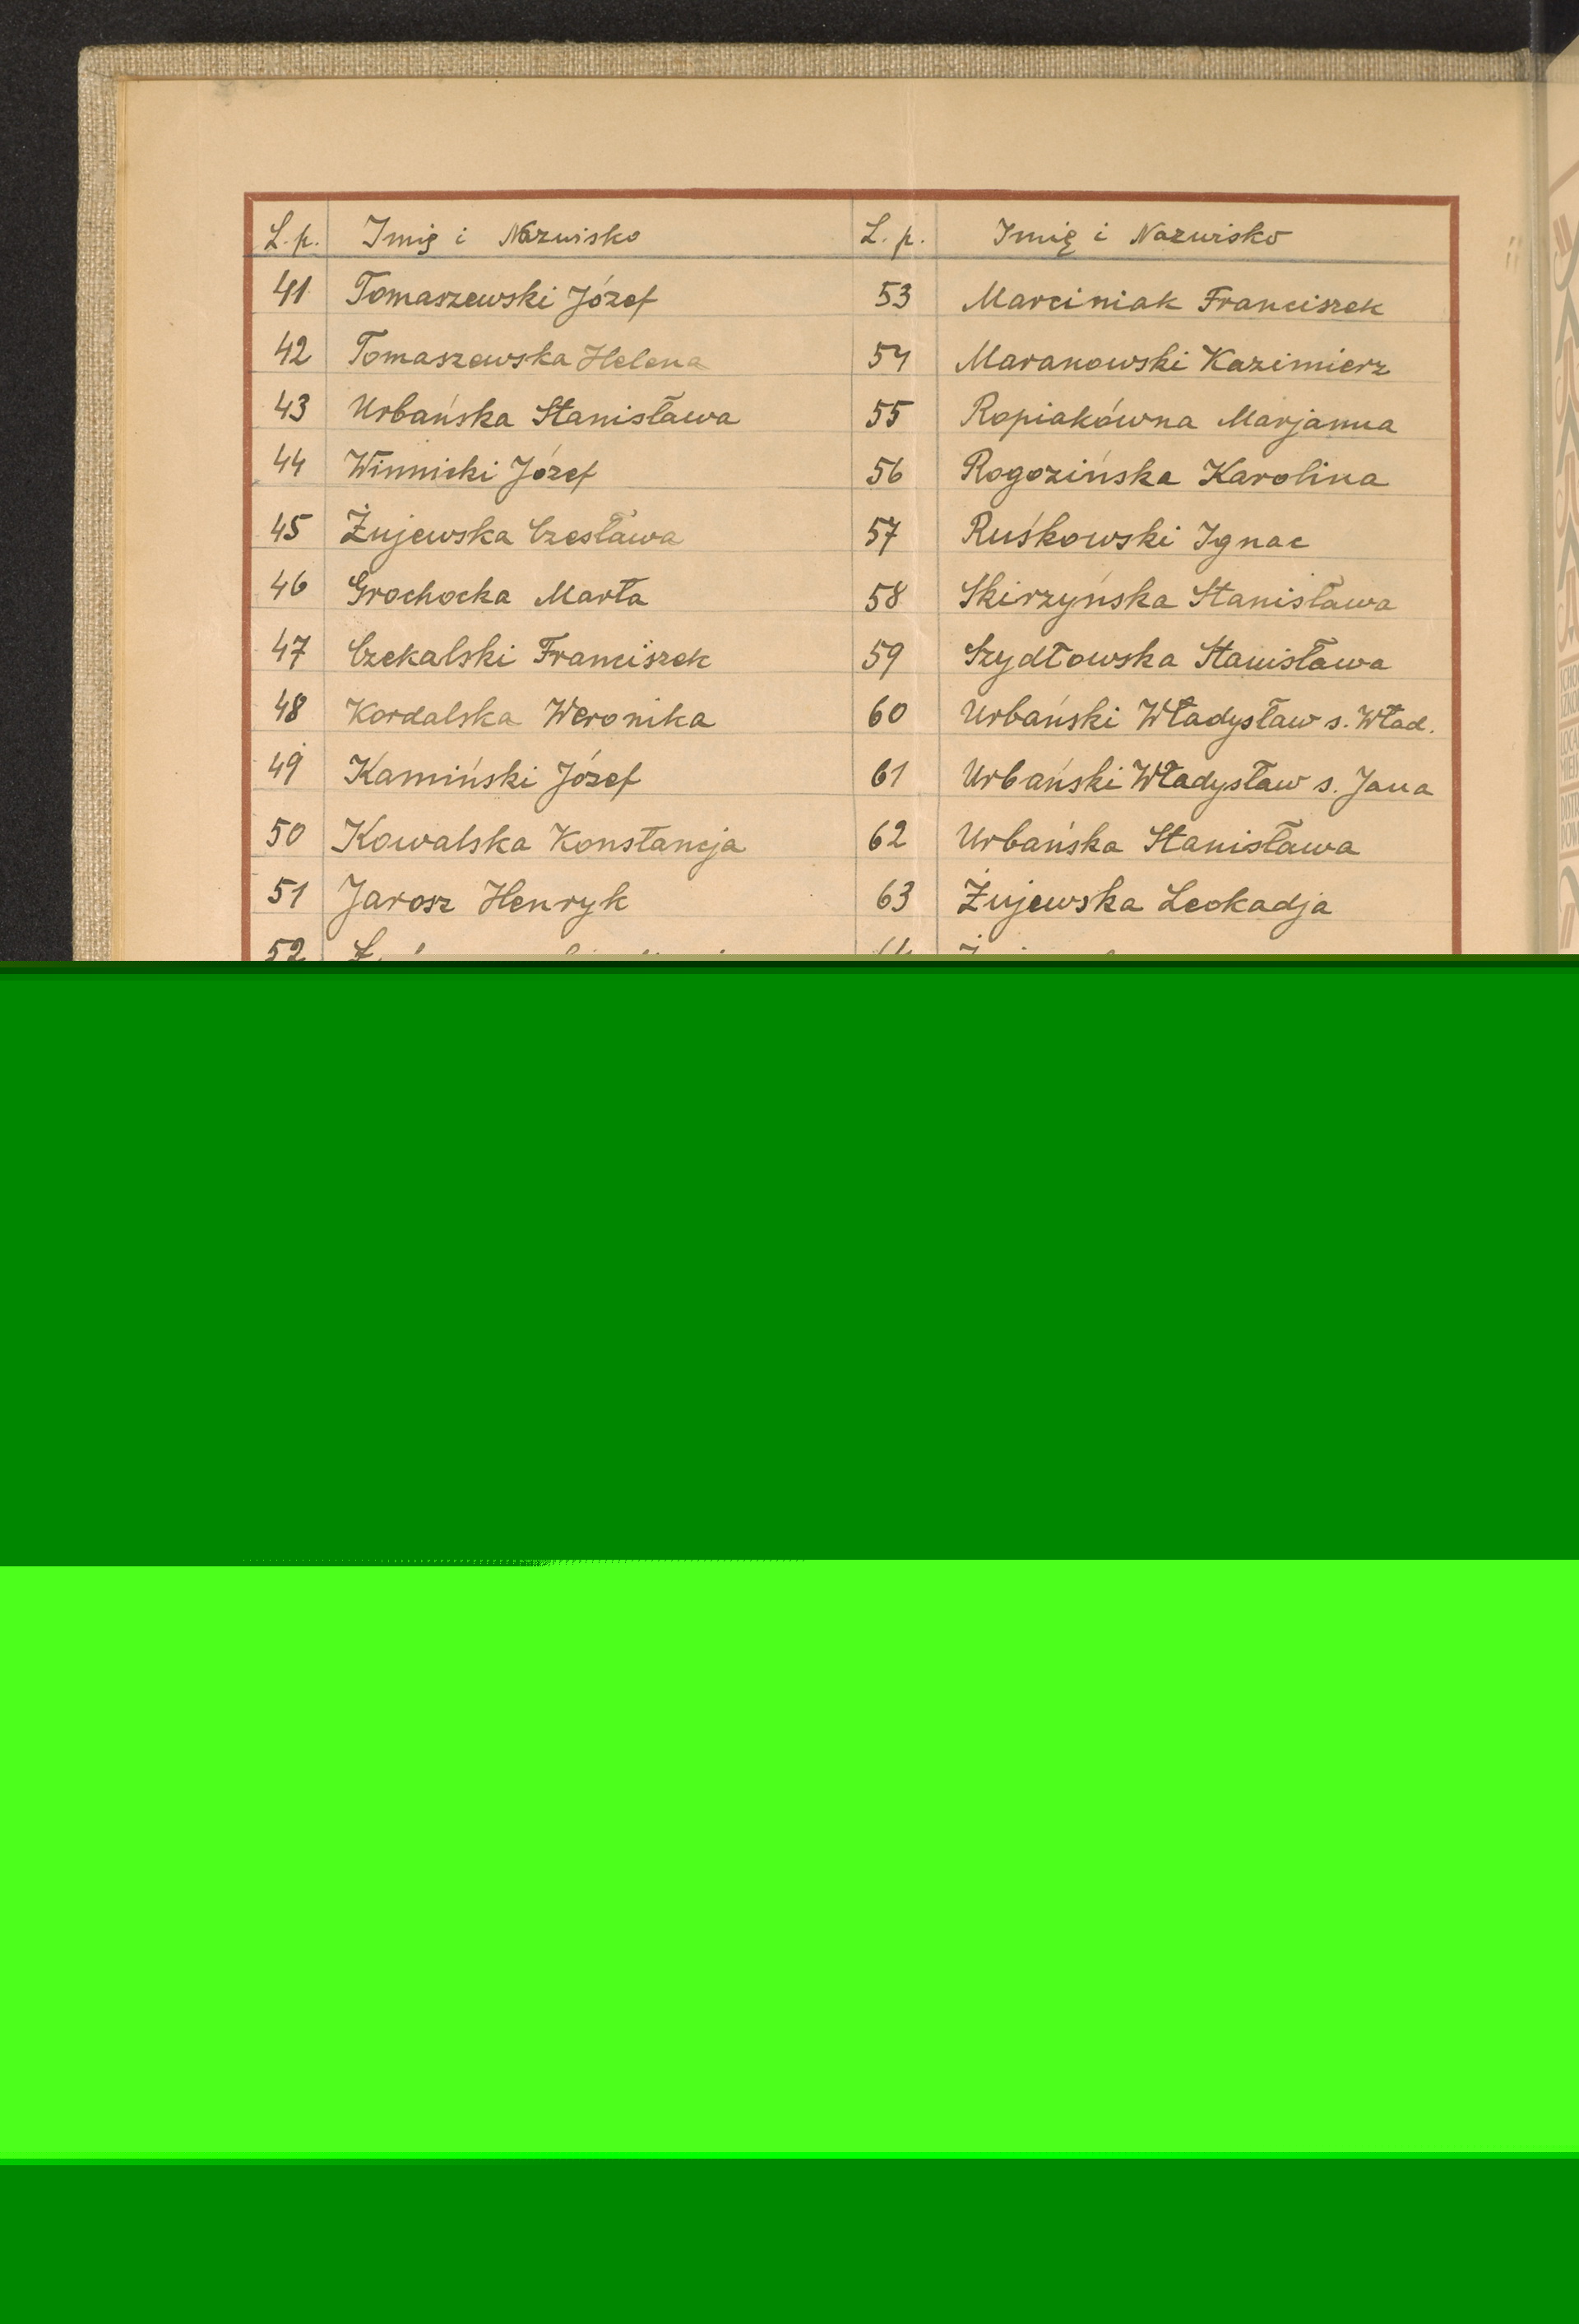 L.p. Imię i Nazwisko L.p. Imię i Nazwisko
41 Tomaszewski Józef 53 Marciniak Franciszek
42 Tomaszewska Helena 54 Maranowski Kazimierz
43 Urbańska Stanisława 55 Ropiakówna Marjanna
44 Winnicki Józef 56 Rogozińska Karolina
45 Żujewska Czesława 57 Ruśkowski Ignac
46 Grochocka Marta 58 Skirzyńska Stanisława
47 Czekalski Franciszek 59 Szydłowska Stanisława
48 Kordalska Weronika 60 Urbański Władysław s. Wład.
49 Kamiński Józef 61 Urbański Władysław s. Jana
50 Kowalska Konstancja 62 Urbańska Stanisława
51 Jarosz Henryk 63 Żujewska Leokadja
52